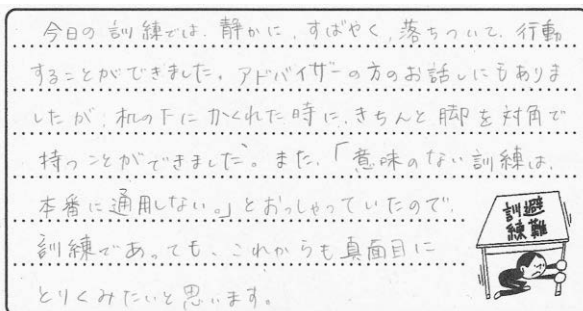 今日の訓練では、静かに、すばやく、落ちついて、行動
することができました。アドバイザーの方のお話しにもありま
したが、机の下にかくれた時に、きちんと脚を対角で
持つことができました。また、「意味のない訓練は、
本番に通用しない。」とおっしゃっていたので、
訓練であっても、これからも真面目に
とりくみたいと思います。
避難
訓練